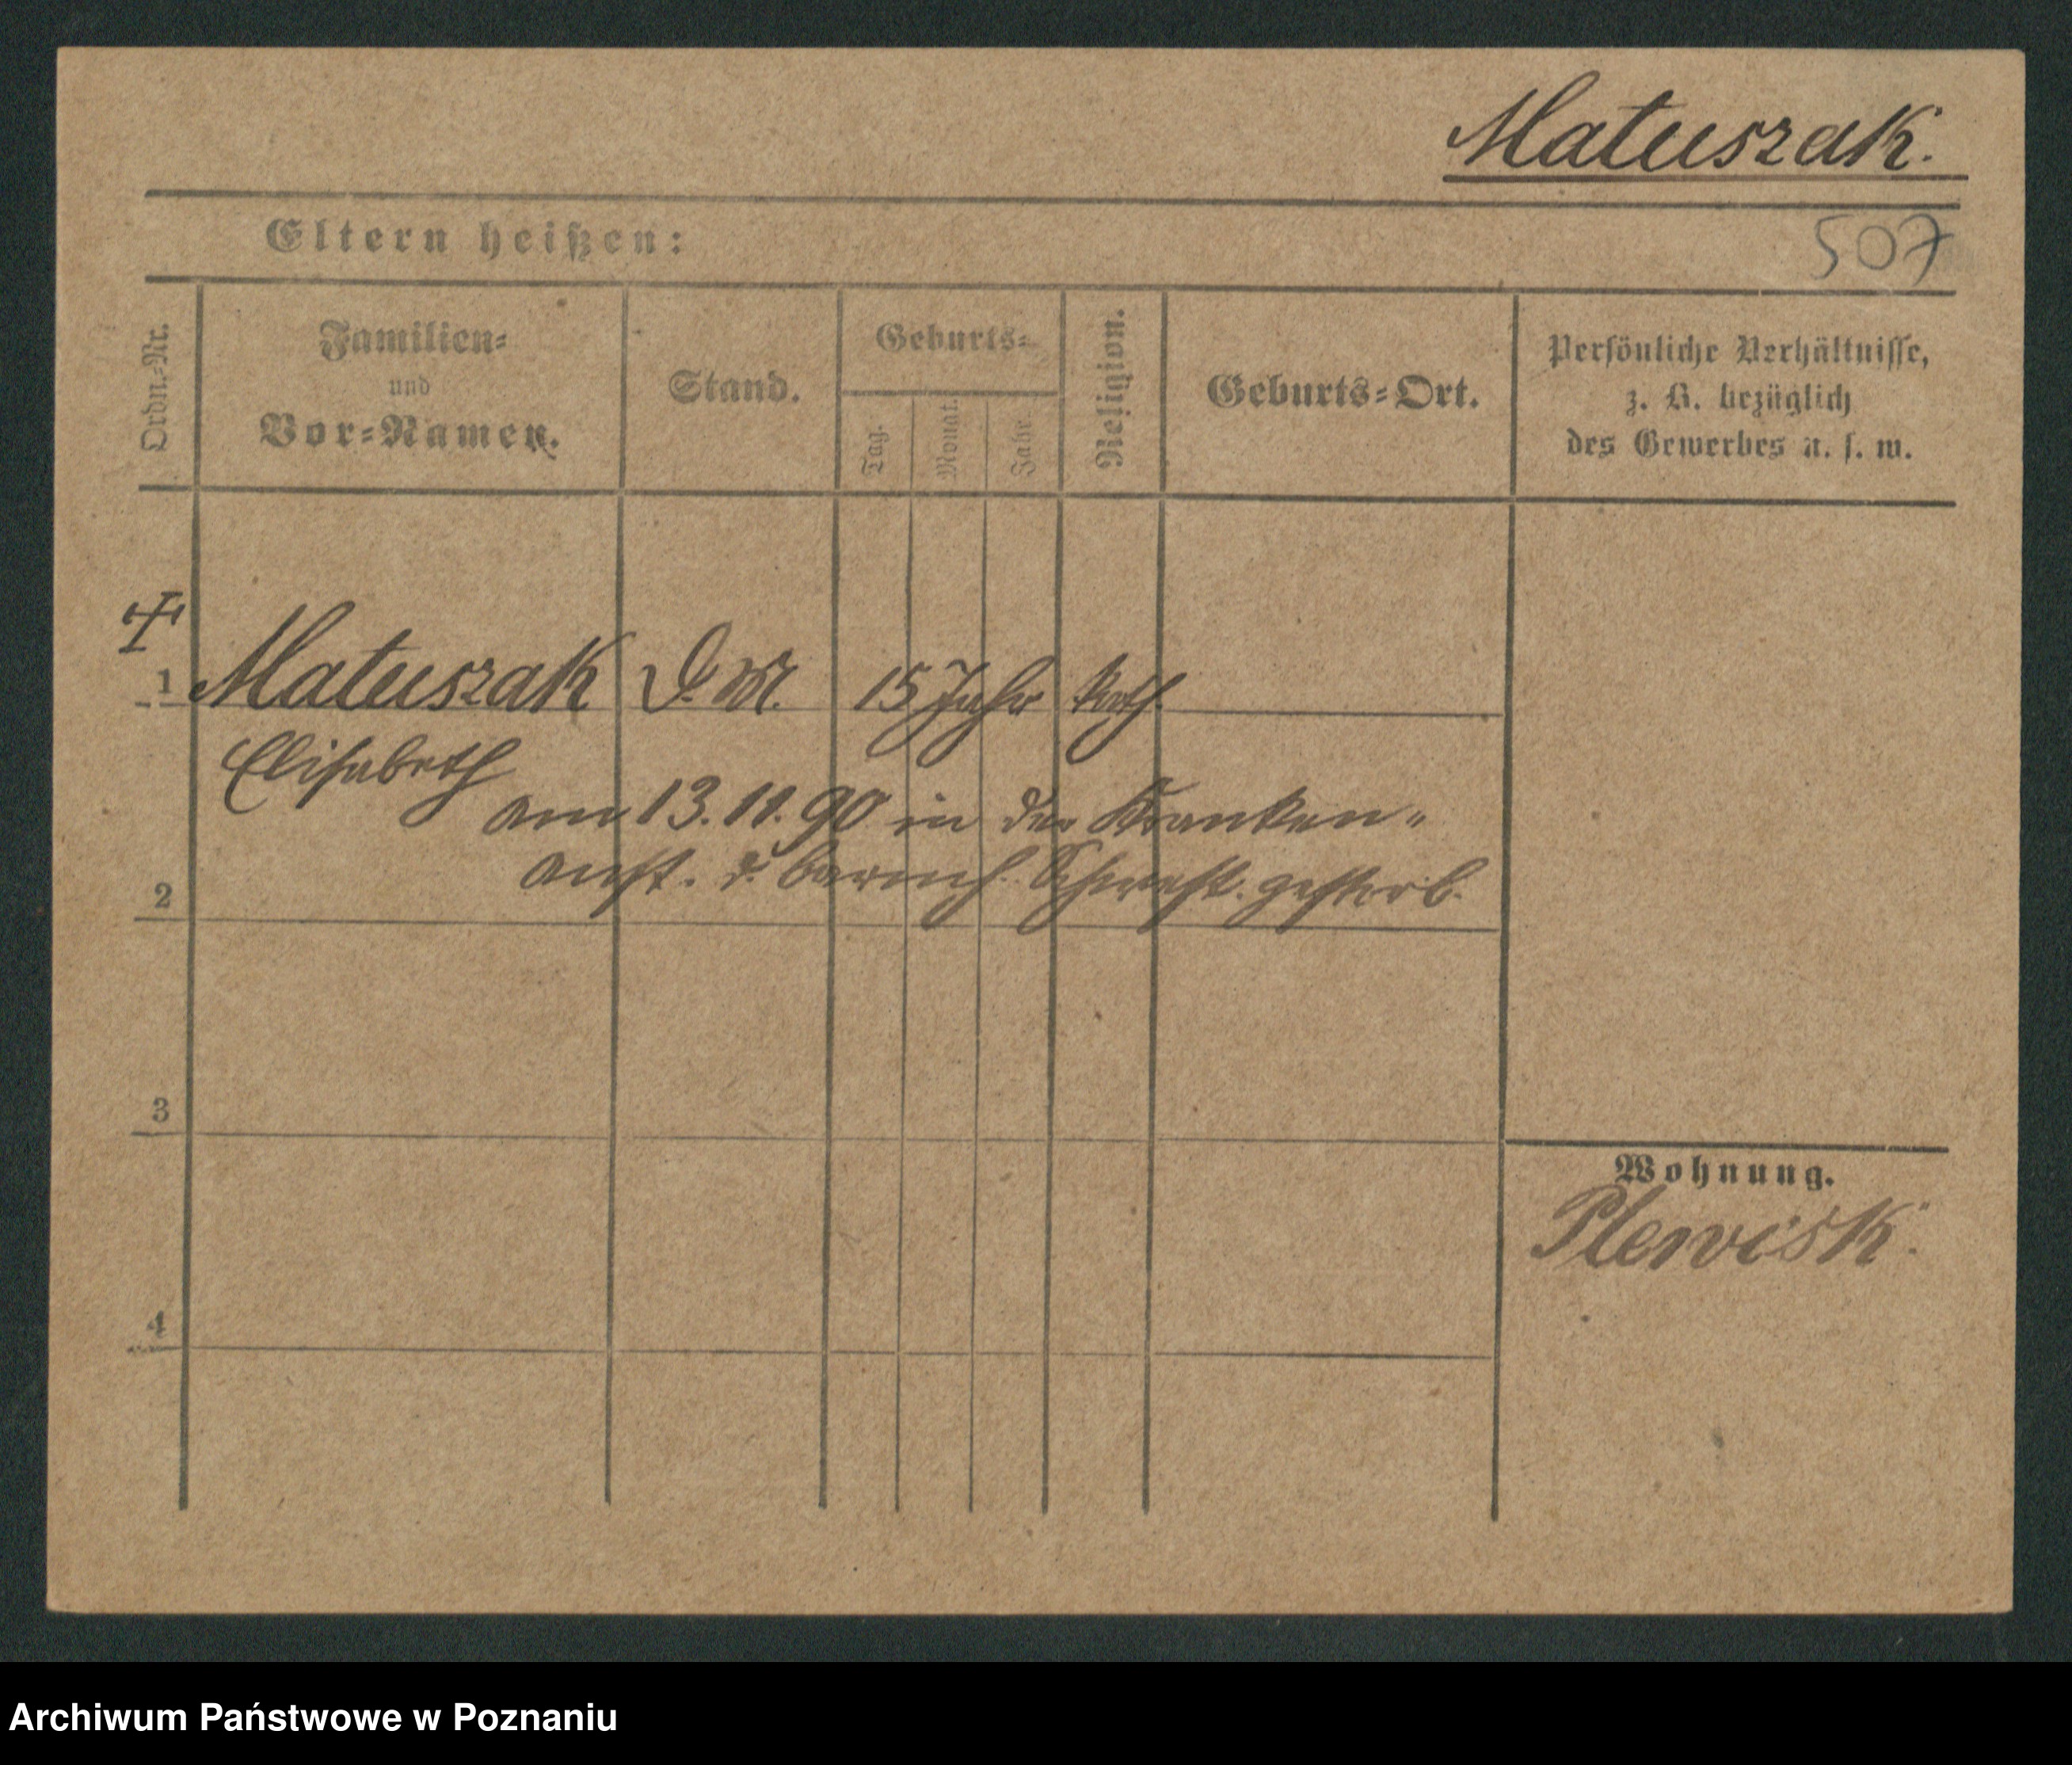 Matuszak.
Eltern heißen:
507
Ordn.-Nr.
Familien-
und
Vor-Namen.
Stand.
Geburts-
Tag.
Monat.
Jahr.
Religion.
Geburts-Ort.
Persönliche Verhältnisse,
z. B. bezüglich
des Gewerbes u. s. w.
1 Matuszak D. M. 15 Jahr kath.
Elisabeth
am 13.11.90 in der Kranken-
anst. d. barmh. Schwest. gestorb.
2
3
Wohnung.
Plewisk.
4
Archiwum Państwowe w Poznaniu